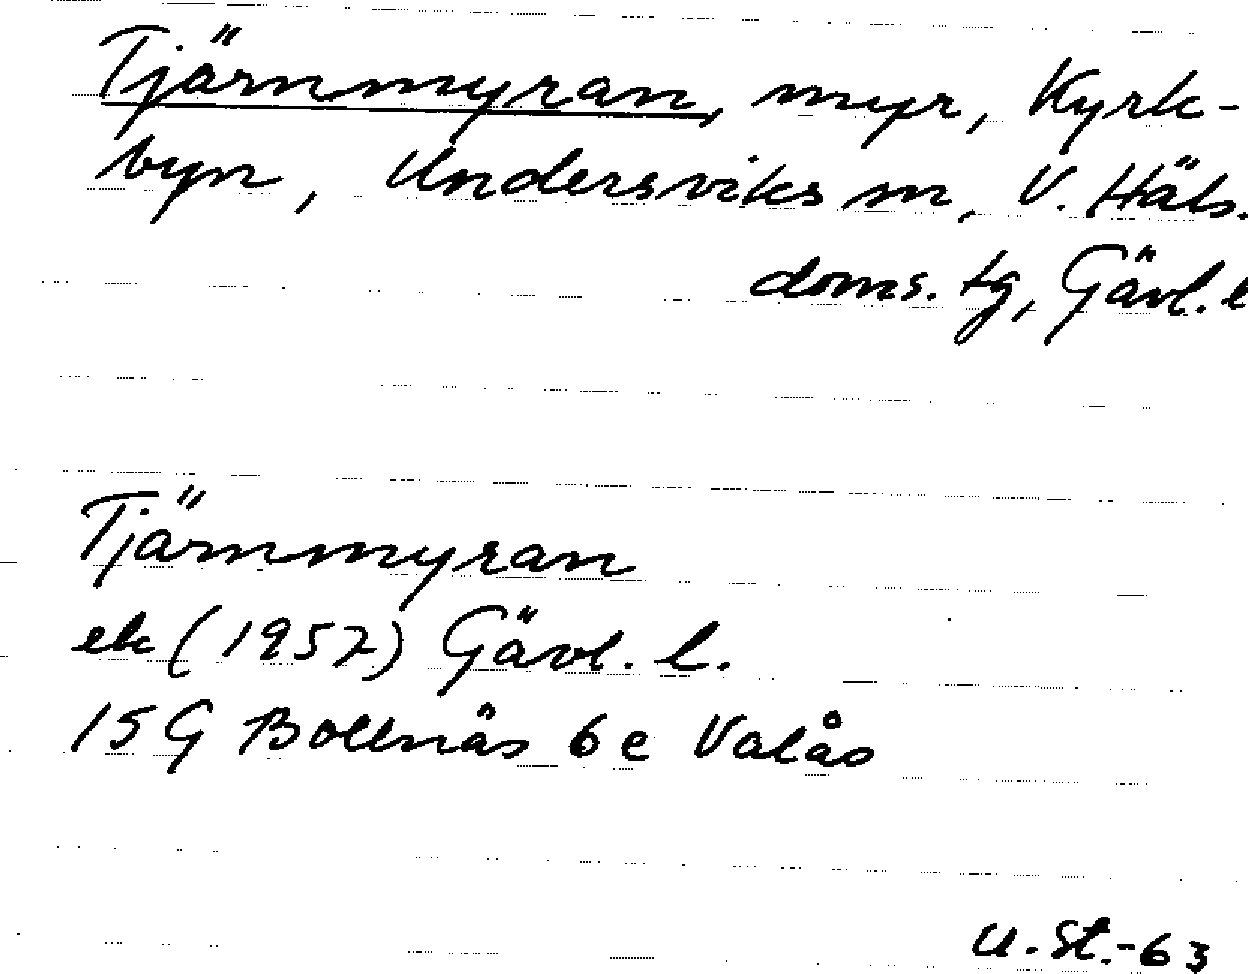 Tjärnmyran, myr, Kyrk-
byn, Undersviks sn, V. Häls.
doms. tg, Gävl. l
Tjärnmyran
ek (1957) Gävl. l.
15 G Bollnäs 6 e Valås
U. St.-63